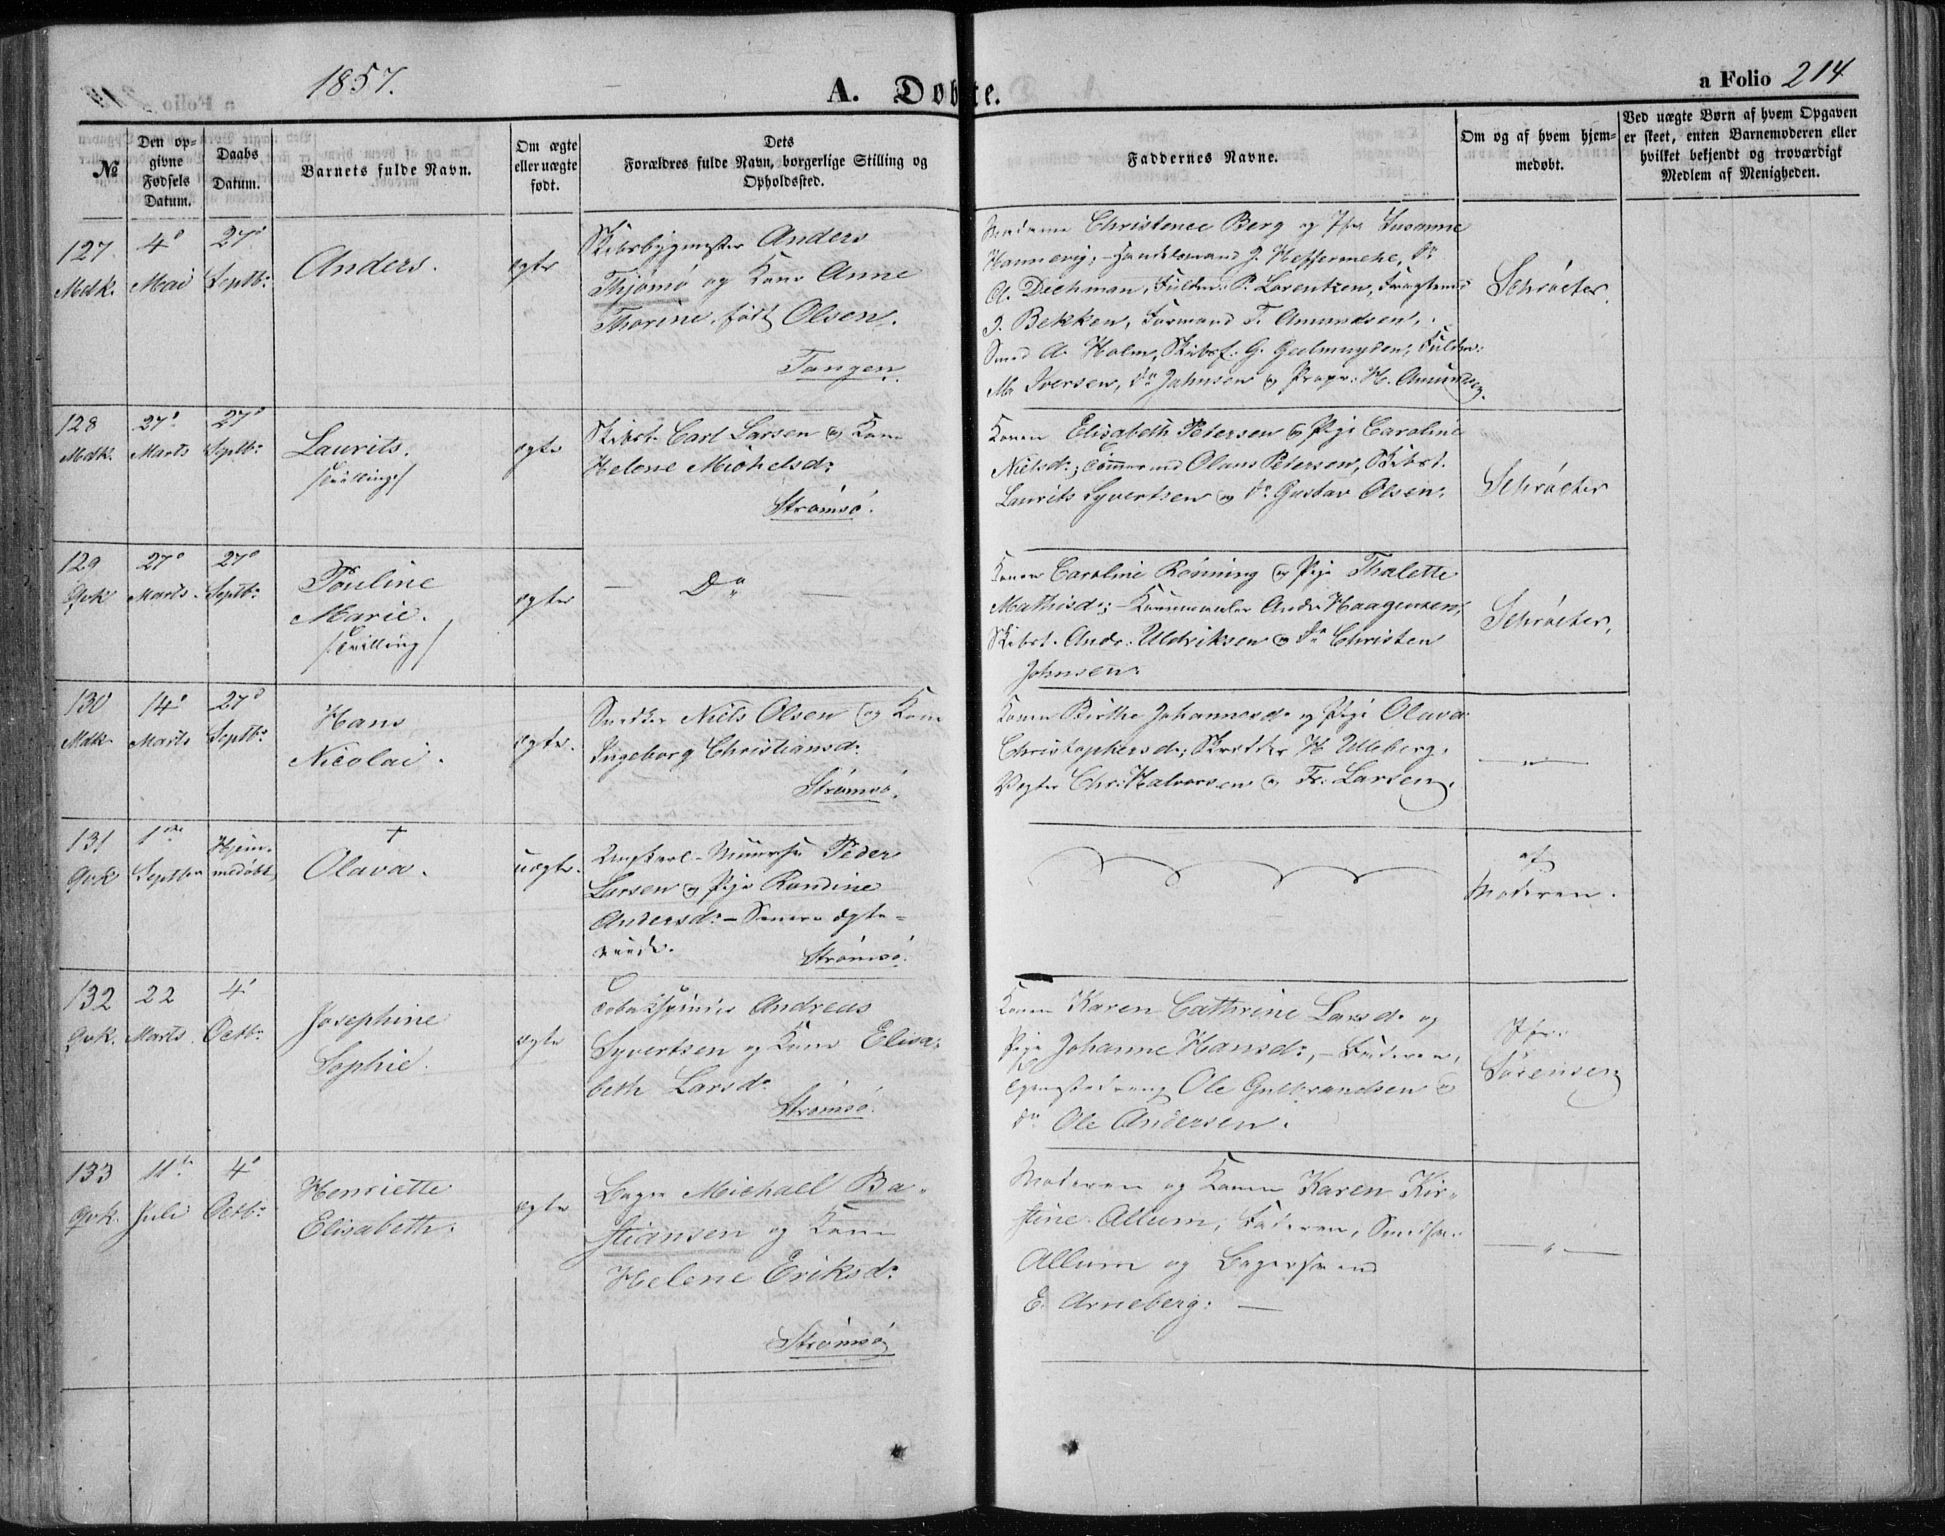 1857.
A. Døbte.
a Folio 214
№
Den op-
givne
Fødsels
Datum.
Daabs
Datum.
Barnets fulde Navn.
Om ægte
eller uægte
født.
Dets
Forældres fulde Navn, borgerlige Stilling og
Opholdssted.
Faddernes Navne.
Om og af hvem hjem-
medøbt.
Ved uægte Børn af hvem Opgaven
er skeet, enten Barnemoderen eller
hvilket bekjendt og troværdigt
Medlem af Menigheden.
127
Mdk.
4de
Mai
27de
Septbr
Anders.
ægte
Skibsbygmester Anders
Thjømø og Kone Anne
Thorine født Olsen.
Tangen.
Madame Christence Berg og Jfr Susanne
Hannevig; Handelsmand J. Heffermehl, Do
O. Dechman, Fuldm. P. Lorentzen,
J. Bekken, Formand T. Amundsen,
Smed A. Holm, Skibsf. G. Geelmuyden, Fuldm:
Iversen, Do Jahnsen og Propr. H. Amundsen.
Schrøeter.
128
Mdk.
27de
Marts
27de
Septbr
Laurits.
/Tvilling/
ægte
Skibst. Carl Larsen og Kone
Helene Michelsdr
Strømsø.
Konen Elisabeth Petersen og Pige Caroline
Nielsdr; Tømmermd Olaus Peterson, Skibst.
Laurits Syvertsen og Do Gustav Olsen.
Schrøeter
129
Qvk
27de
Marts.
27de
Septbr
Pouline
Marie.
/Tvilling/
ægte
— Do —
Konen Caroline Rønning og Pige Thalette
Mathisdr; Andr Haagensen,
Skibst. Andr. Uldriksen og Do Christen
Johnsen.
Schrøeter.
130
Mdk.
14de
Marts
27de
Septbr
Hans
Nicolai.
ægte.
Snedker Niels Olsen og Kone
Ingeborg Christiansdr
Strømsø.
Konen Birthe Johannesdr og Pige Olava
Christophersdr; Skrædder H. Ulleberg,
Vægter Chr. Halvorsen og Fr. Larsen.
— " —
131
Qvk
1ste
Septbr
Hjem-
medøbt
+
Olava.
uægte.
Ungkarl Peder
Larsen og Pige Randine
Andersdr —
Strømsø.
af
Moderen.
132
Qvk.
22
Marts
4de
Octbr
Josephine
Sophie.
ægte
Tobaksspinder Andreas
Syvertsen og Kone Elisa-
beth Larsdr
Strømsø.
Konen Karen Cathrine Larsdr og
Pige Johanne Hansdr, — Faderen,
Ole Gulbrandsen og
Do Ole Andersen.
Jfr.
Sørensen
133
Qvk.
11te
Juli
4de
Octbr
Henriette
Elisabeth.
ægte
Bager Michael Ba-
stiansen og Kone
Helene Eriksdr
Strømsø
Moderen og Konen Karen Kir-
stine Allum, Faderen,
Allum og Bagersvend
E. Arneberg. —
— " —